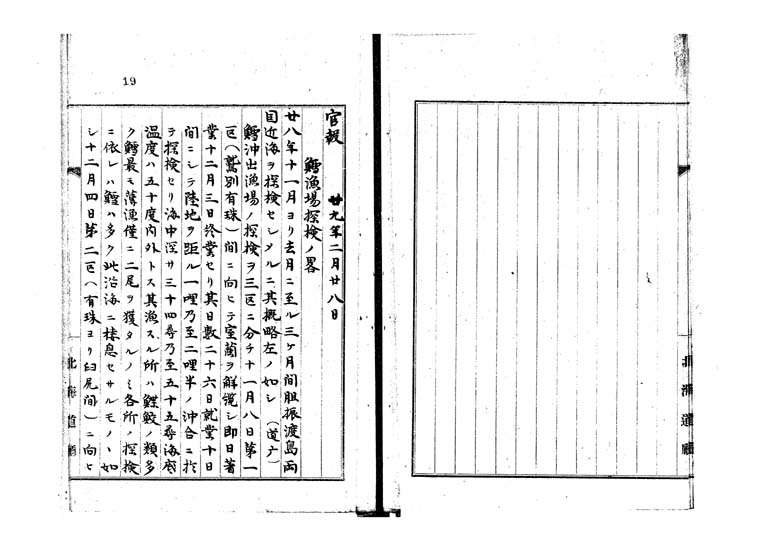 19
官報　廿九年二月廿八日
鱈漁場探検ノ畧
廿八年十一月ヨリ去月ニ至ル三ケ月間胆振渡島両
国近海ヲ探検セシメタルニ其概略左ノ如シ（道庁）
鱈沖出漁場ノ探検ヲ三区ニ分チ十一月八日第一
区（鷲別有珠）間ニ向ヒテ室蘭ヲ解纜シ即日著
業十二月三日終業セリ其日数二十六日就業十日
間ニシテ陸地ヲ距ル一哩乃至二哩半ノ沖合ニ於
テ探検セリ海中深サ三十四尋乃至五十五尋海底
温度ハ五十度内外トス其漁スル所ハ鰈鮫ノ類多
ク鱈最モ薄漁僅ニ二尾ヲ獲タルノミ各所ノ探検
ニ依レハ鱈ハ多ク此沿海ニ棲息セサルモノヽ如
シ十二月四日第二区（有珠ヨリ臼尻間）ニ向ヒ
北海道廳
北海道廳